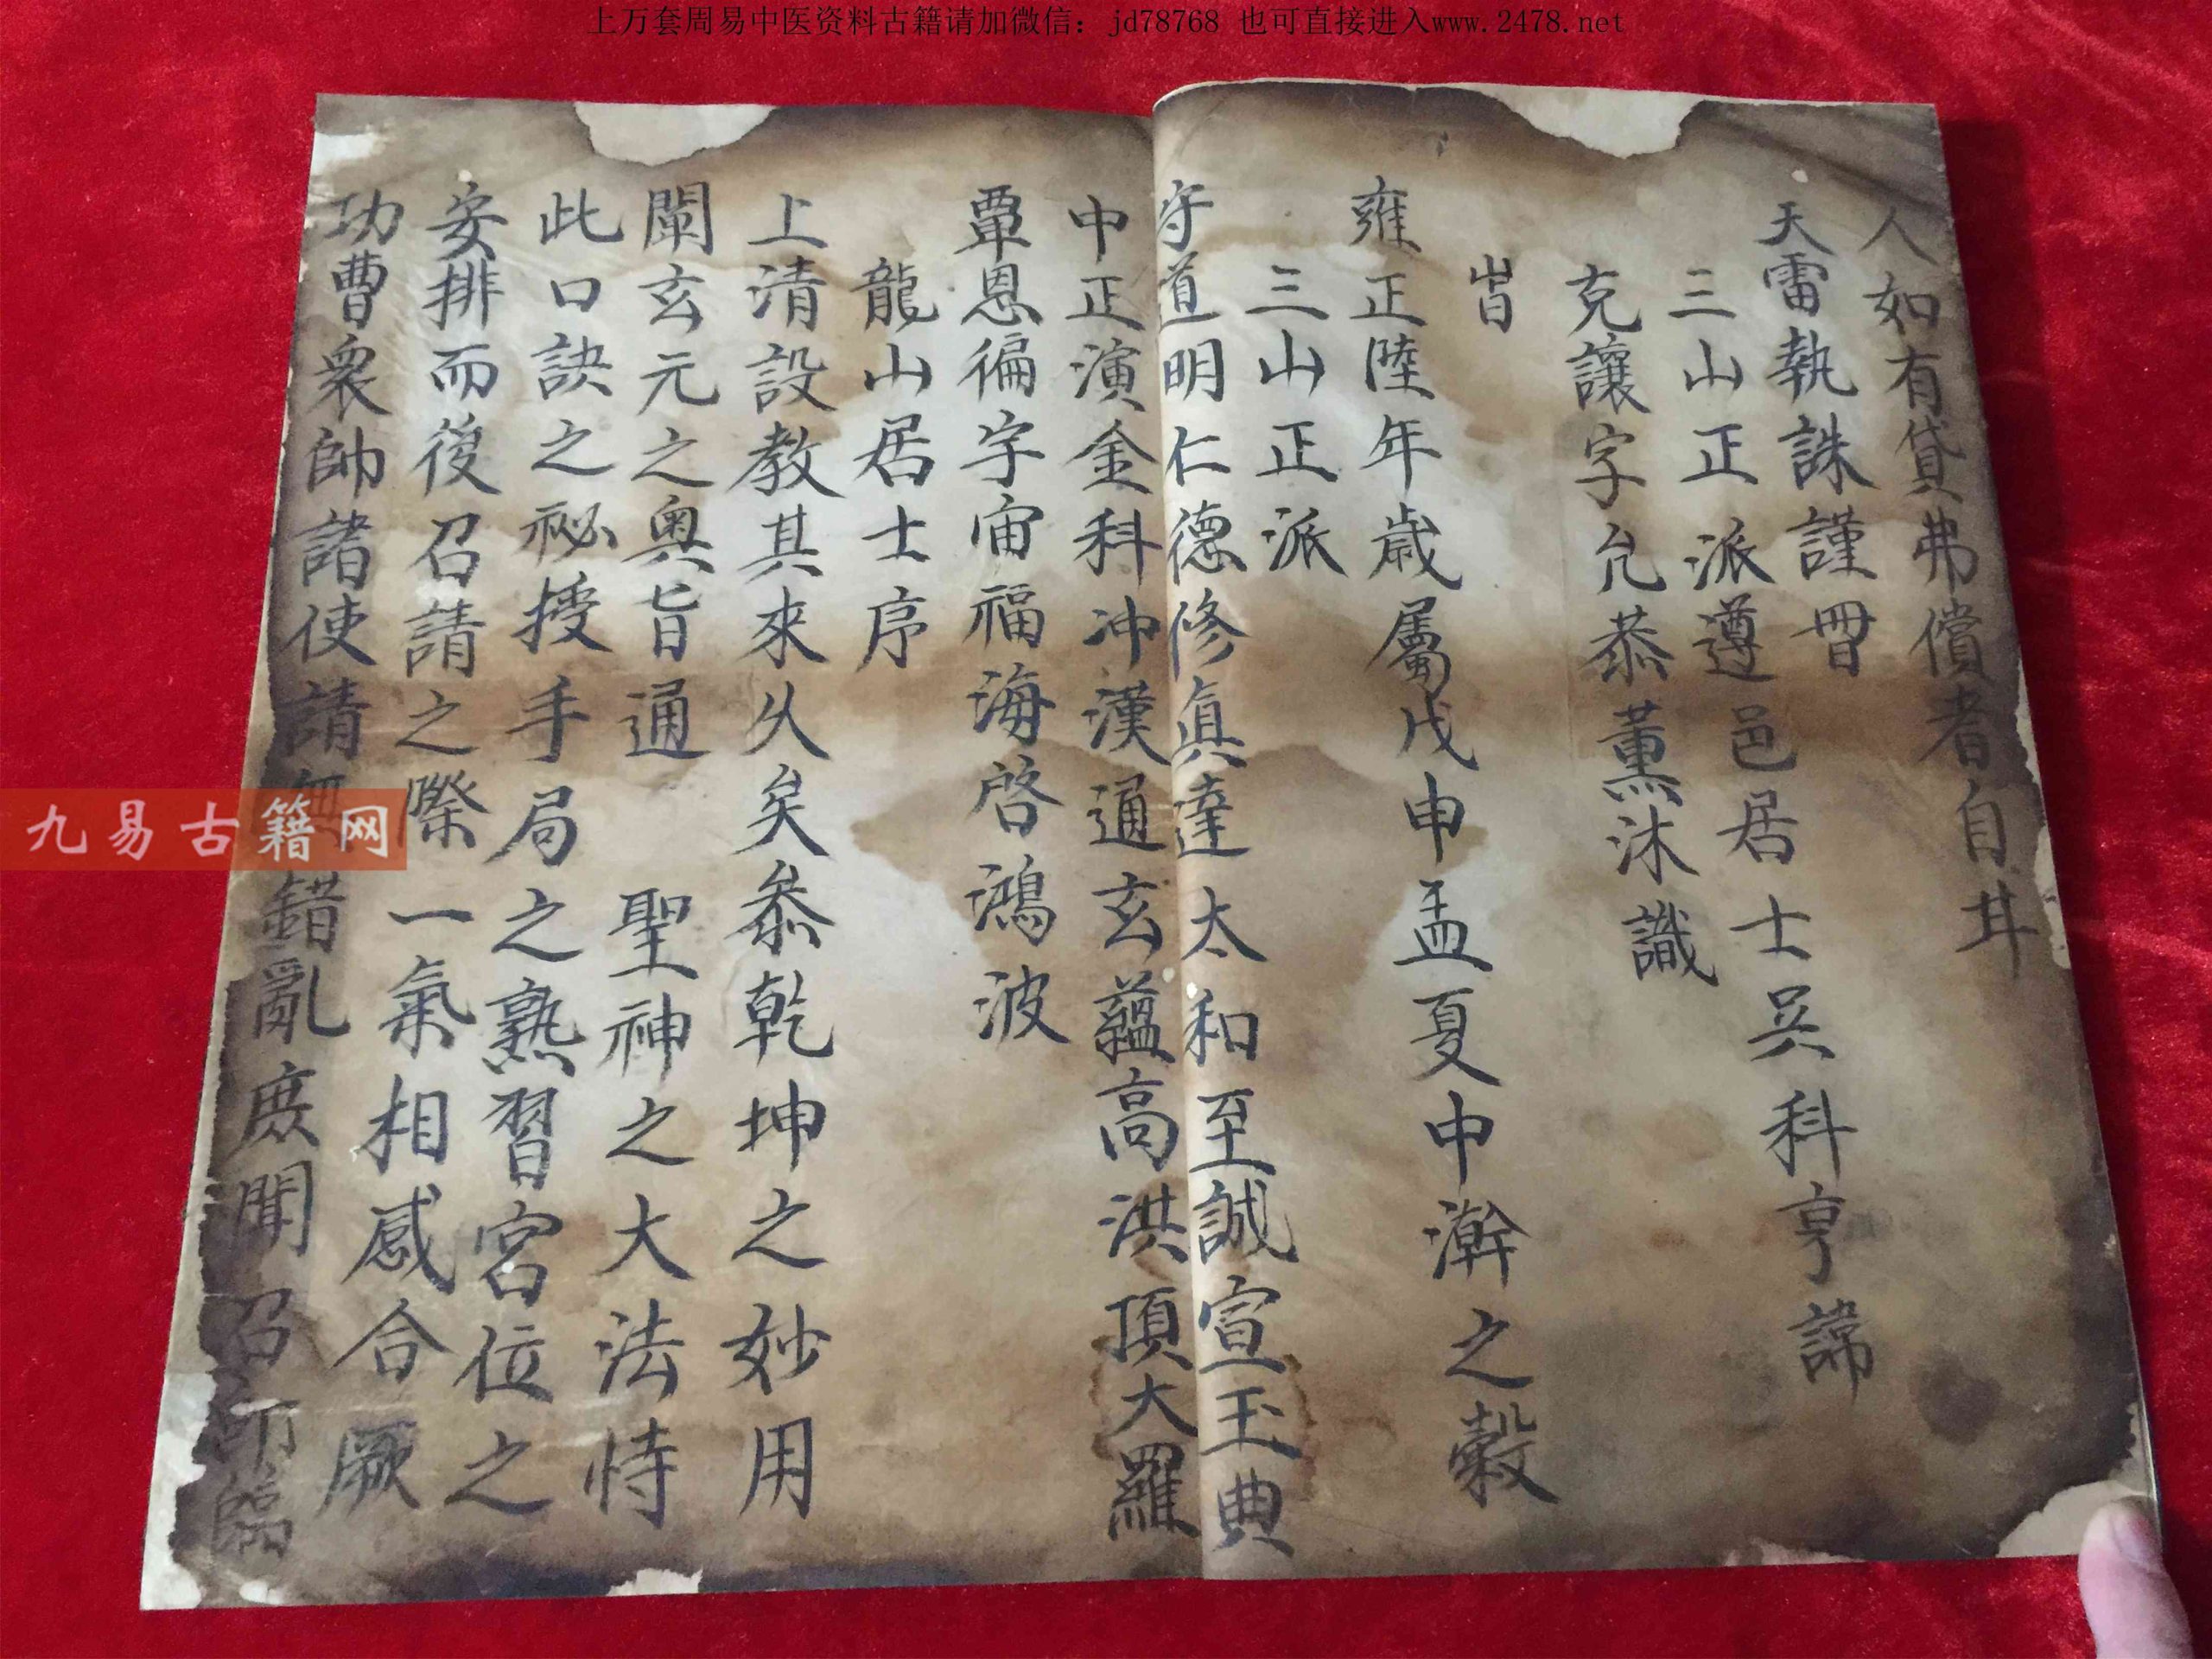 上万套周易中医资料古籍请加微信：jd78768 也可直接进入www.2478.net
人如有貸弗償者自幷
天雷執誅謹冊
三山正派遵邑居士吳科亨諦
克讓字允恭薰沐識
旹
雍正陸年歲屬戊申孟夏中澣之穀
三山正派
守道明仁德修真達太和至誠宣玉典
中正演金科冲漢通玄蘊高洪頂大羅
覃恩徧宇宙福海啓鴻波
龍山居士序
上清設教其來久矣叅乾坤之妙用
闡玄元之奧旨通 聖神之大法恃
此口訣之祕授手局之熟習宮位之
安排而後召請之際 一氣相感合厥
功曹衆帥諸使請無錯亂庶聞召而臨
九易古籍网